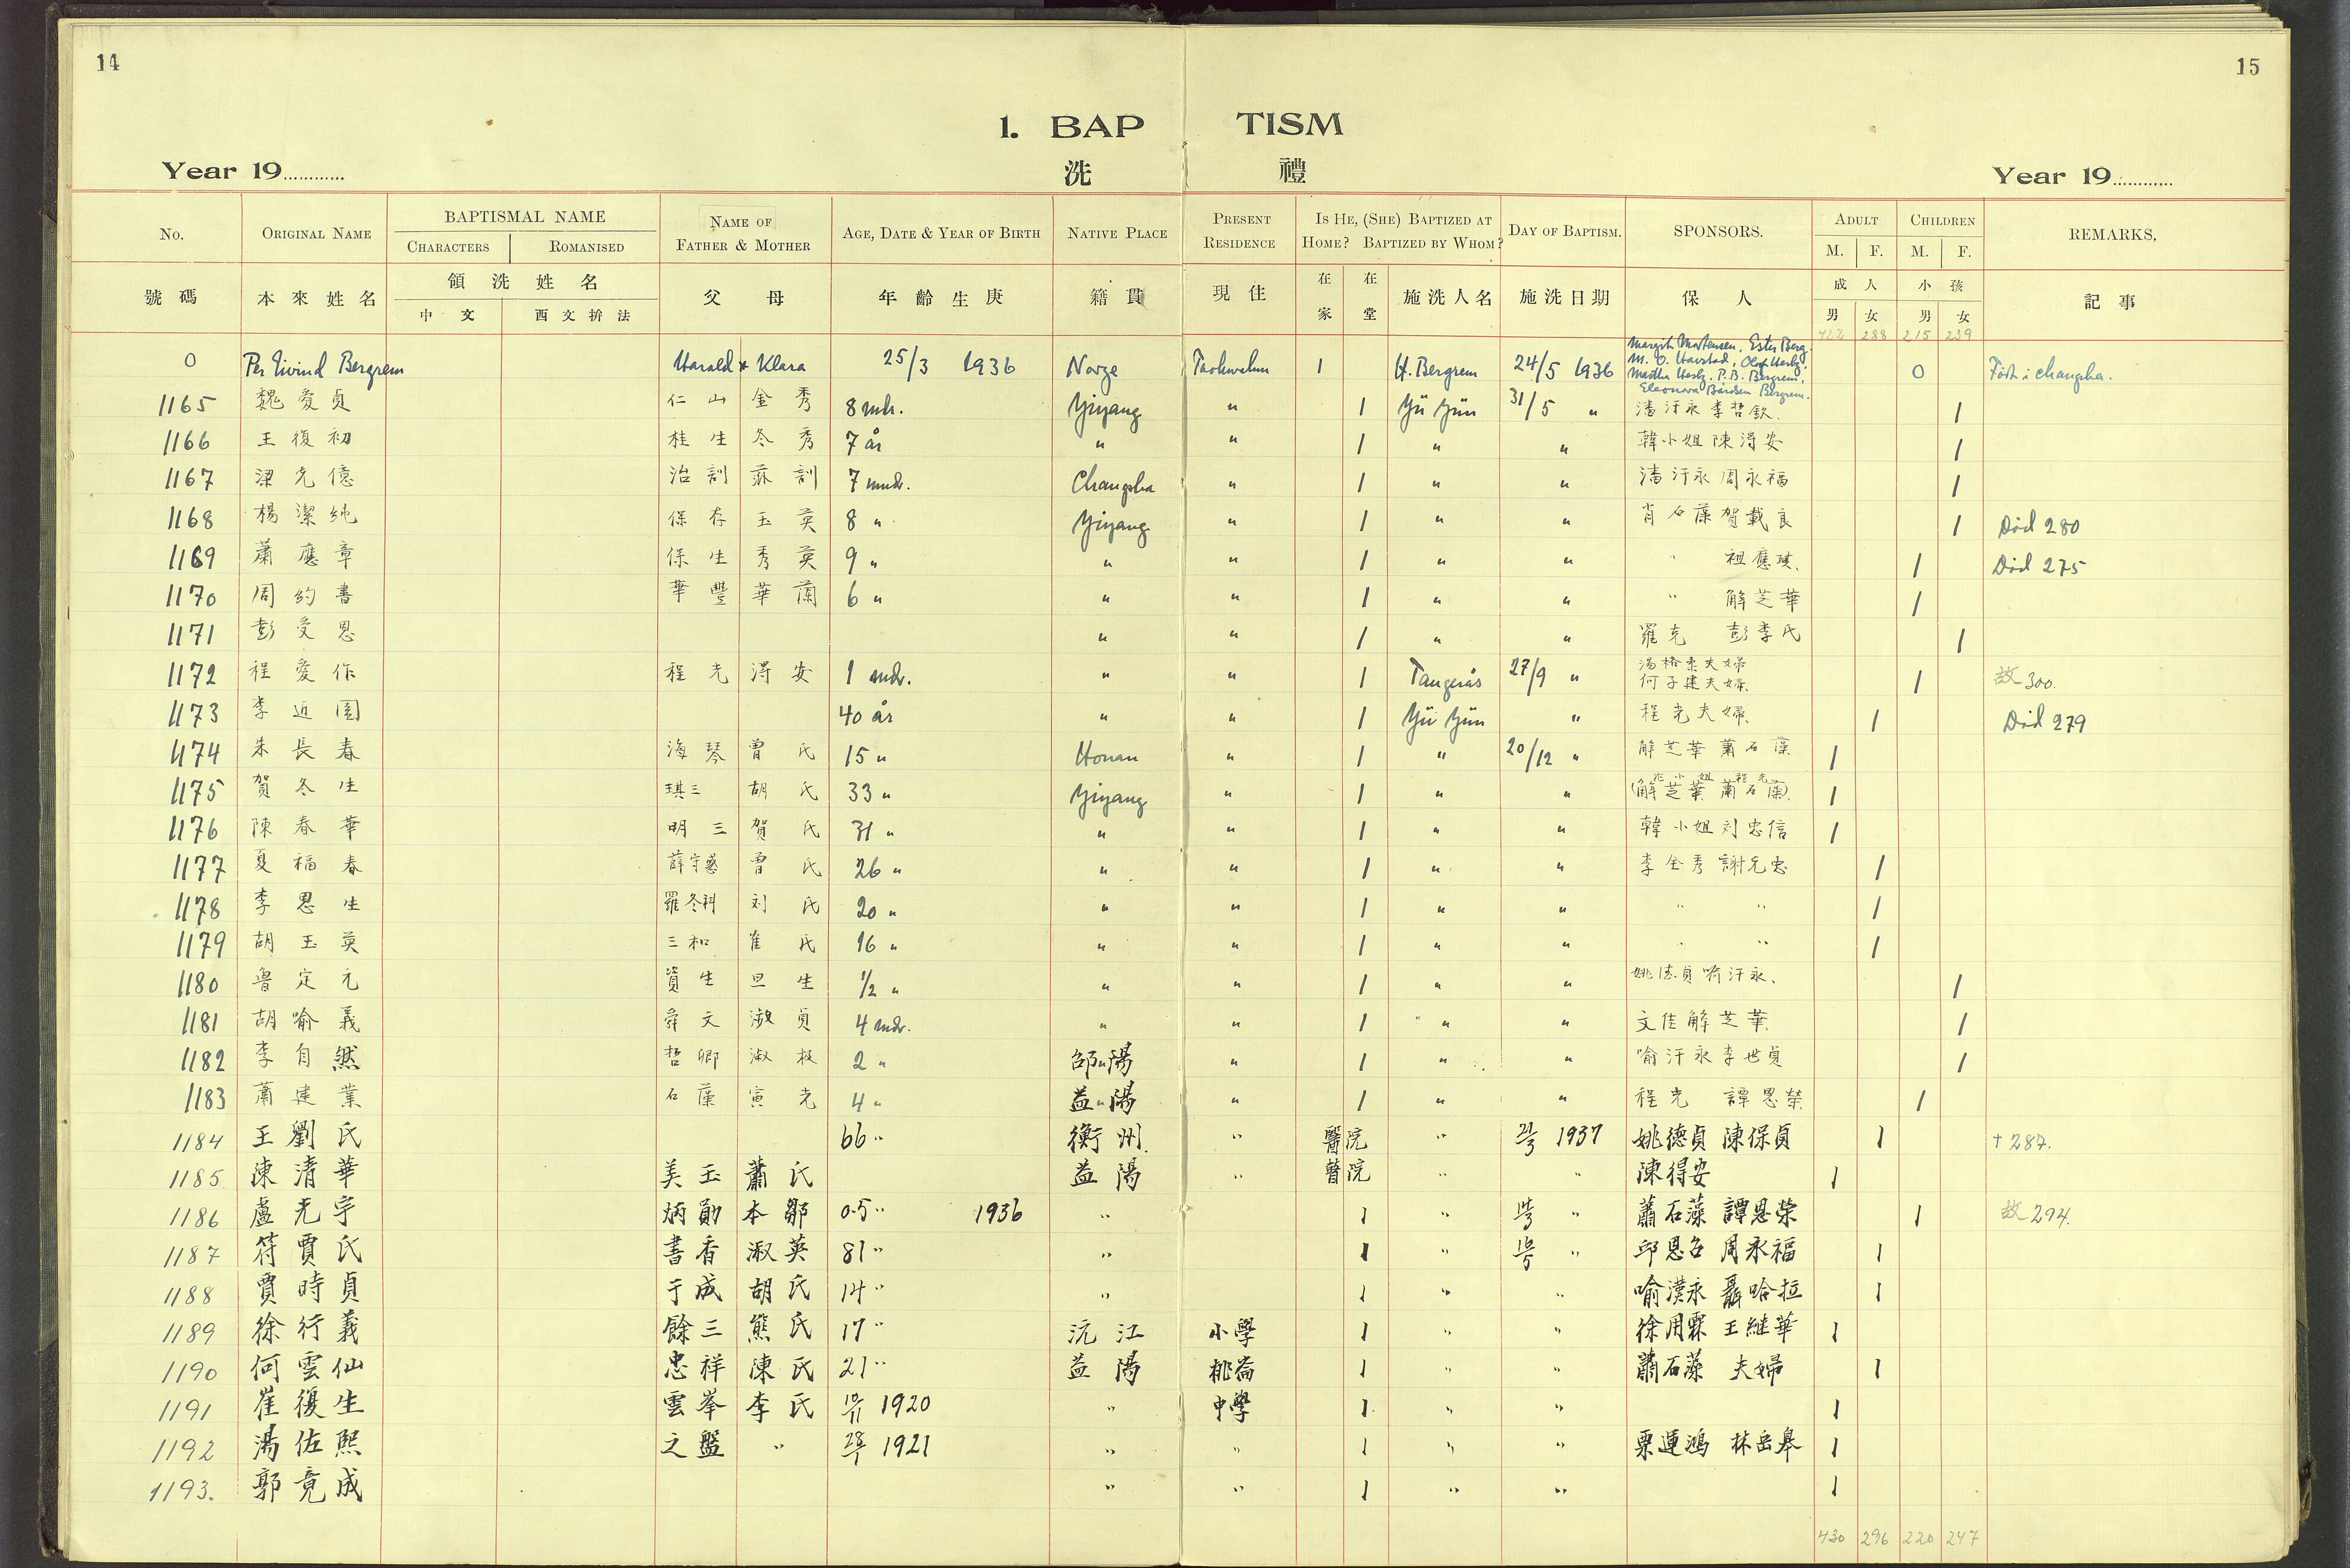 14
15
1. BAP TISM
洗 禮
Year 19............ Year 19............
No. ORIGINAL NAME BAPTISMAL NAME CHARACTERS ROMANISED NAME OF FATHER & MOTHER AGE, DATE & YEAR OF BIRTH NATIVE PLACE PRESENT RESIDENCE IS HE, (SHE) BAPTIZED AT HOME? BAPTIZED BY WHOM? DAY OF BAPTISM. SPONSORS. ADULT M. F. CHILDREN M. F. REMARKS.
號碼 本來姓名 領洗姓名 中文 西文拚法 父母 年齡生庚 籍貫 現住 在家 在堂 施洗人名 施洗日期 保人 成人 男 女 小孩 男 女 記事
422 288 215 239
O Per Eivind Bergrem Harald & Klara 25/3 1936 Norge Taohwalun 1 H. Bergrem 24/5 1936 Margit Mortensen, Ester Berg, M. O. Havstad, P. B. Bergrem, Eleonora Bårdsen Bergrem. O Født i Changsha.
1165 魏愛貞 仁山 金秀 8 mdr. Yiyang " 1 Yü Yün 31/5 " 潘汗永 李哲欽 1
1166 王復初 桂生 冬秀 7 år " " 1 " " 韓小姐 陳淂安 1
1167 梁光億 治訓 蓀訓 7 mndr. Changsha " 1 " " 潘汗永 周永福 1
1168 楊潔純 保存 玉英 8 " Yiyang " 1 " " 肖石藻 賀載良 1 Död 280
1169 蕭應章 保生 秀英 9 " " " 1 " " " 祖應琪. 1 Död 275
1170 周約書 華豐 華蘭 6 " " " 1 " " " 解芝華 1
1171 彭受恩 " " 1 " " 羅克 彭李氏 1
1172 程愛作 程光 淂安 1 mdr. " " 1 Tangerås 27/9 " 何子建夫婦 1 故 300.
1173 李近園 40 år " " 1 Yü Yün " 程光夫婦 1 Död 279
1174 朱長春 海琴 曾氏 15 " Honan " 1 " 20/12 " 解芝華 蕭石藻 1
1175 賀冬生 琪三 胡氏 33 " Yiyang " 1 " " (解芝華 蕭石藻) 1
1176 陳春華 明三 賀氏 31 " " " 1 " " 韓小姐 刘忠信 1
1177 夏福春 曾氏 26 " " " 1 " " 李金秀 謝允忠 1
1178 李恩生 羅冬科 刘氏 20 " " " 1 " " " " 1
1179 胡玉英 三和 崔氏 16 " " " 1 " " " " 1
1180 魯定元 資生 旦生 1/2 " " " 1 " " 姚德貞 喻汗永. 1
1181 胡喻義 舜文 淑貞 4 mdr. " " 1 " " 文佳 解芝華 1
1182 李自然 哲卿 淑 2 " 邵陽 " 1 " " 喻汗永 李世貞 1
1183 蕭建業 石藻 寅光 4 " 益陽 " 1 " " 程光 譚恩榮 1
1184 王劉氏 66 " 衡州. " 醫院 " 21/3 1937 姚德貞 陳保貞 1 † 287.
1185 陳清華 美玉 蕭氏 益陽 " 醫院 " " 陳得安 1
1186 盧光宇 炳勛 本鄒 0.5 " 1936 " 1 " " 蕭石藻 譚恩榮 1 故 294.
1187 符賈氏 書香 淑英 81 " " 1 " " 邱恩召 周永福 1
1188 賈時貞 于成 胡氏 14 " " 1 " " 喻漢永 聶哈拉 1
1189 徐行義 餘三 熊氏 17 " 沅江 小學 1 " " 徐用霖 王継華 1
1190 何雲仙 忠祥 陳氏 21 " 益陽 桃崙 1 " " 蕭石藻 夫婦 1
1191 崔復生 雲峯 李氏 10/11 1920 " 中學 1 " " 1
1192 湯佐熙 之盤 " 28/1 1921 " " 1 " " 栗運鴻 林岳皋 1
1193. 郭竟成 " " 1 " " 1
430 296 220 247